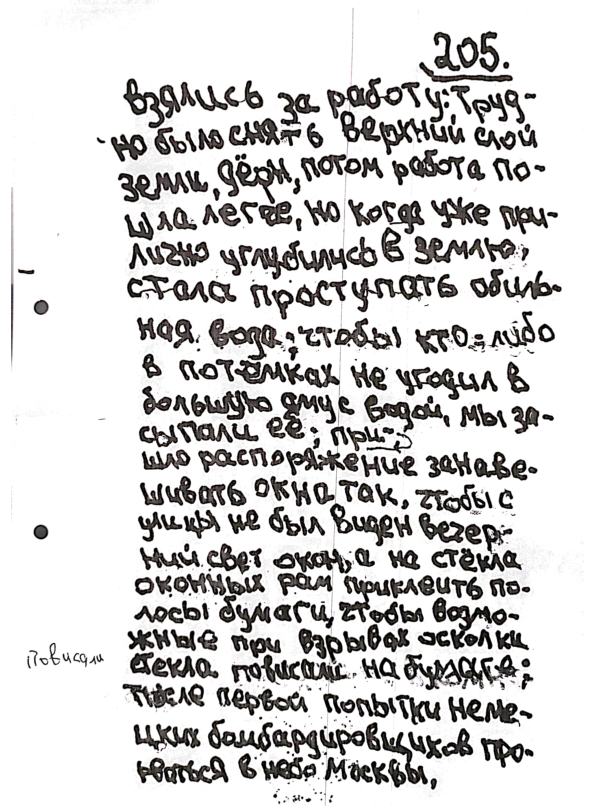 205.
взялись за работу: труд-
но было снять верхний слой
земли, дёрн, потом работа по-
шла легче, но когда уже при-
лично углубились в землю,
стала проступать обиль-
ная вода; чтобы кто-либо
в потёмках не угодил в
большую яму с водой, мы за-
сыпали её; при-
шло распоряжение занаве-
шивать окна так, чтобы с
улицы не был виден вечер-
ний свет окон, а на стёкла
оконных рам приклеить по-
лосы бумаги, чтобы возмо-
жные при взрывах осколки
стекла повисали на бумаге;
Повисали
после первой попытки неме-
цких бомбардировщиков про-
рваться в небо Москвы,